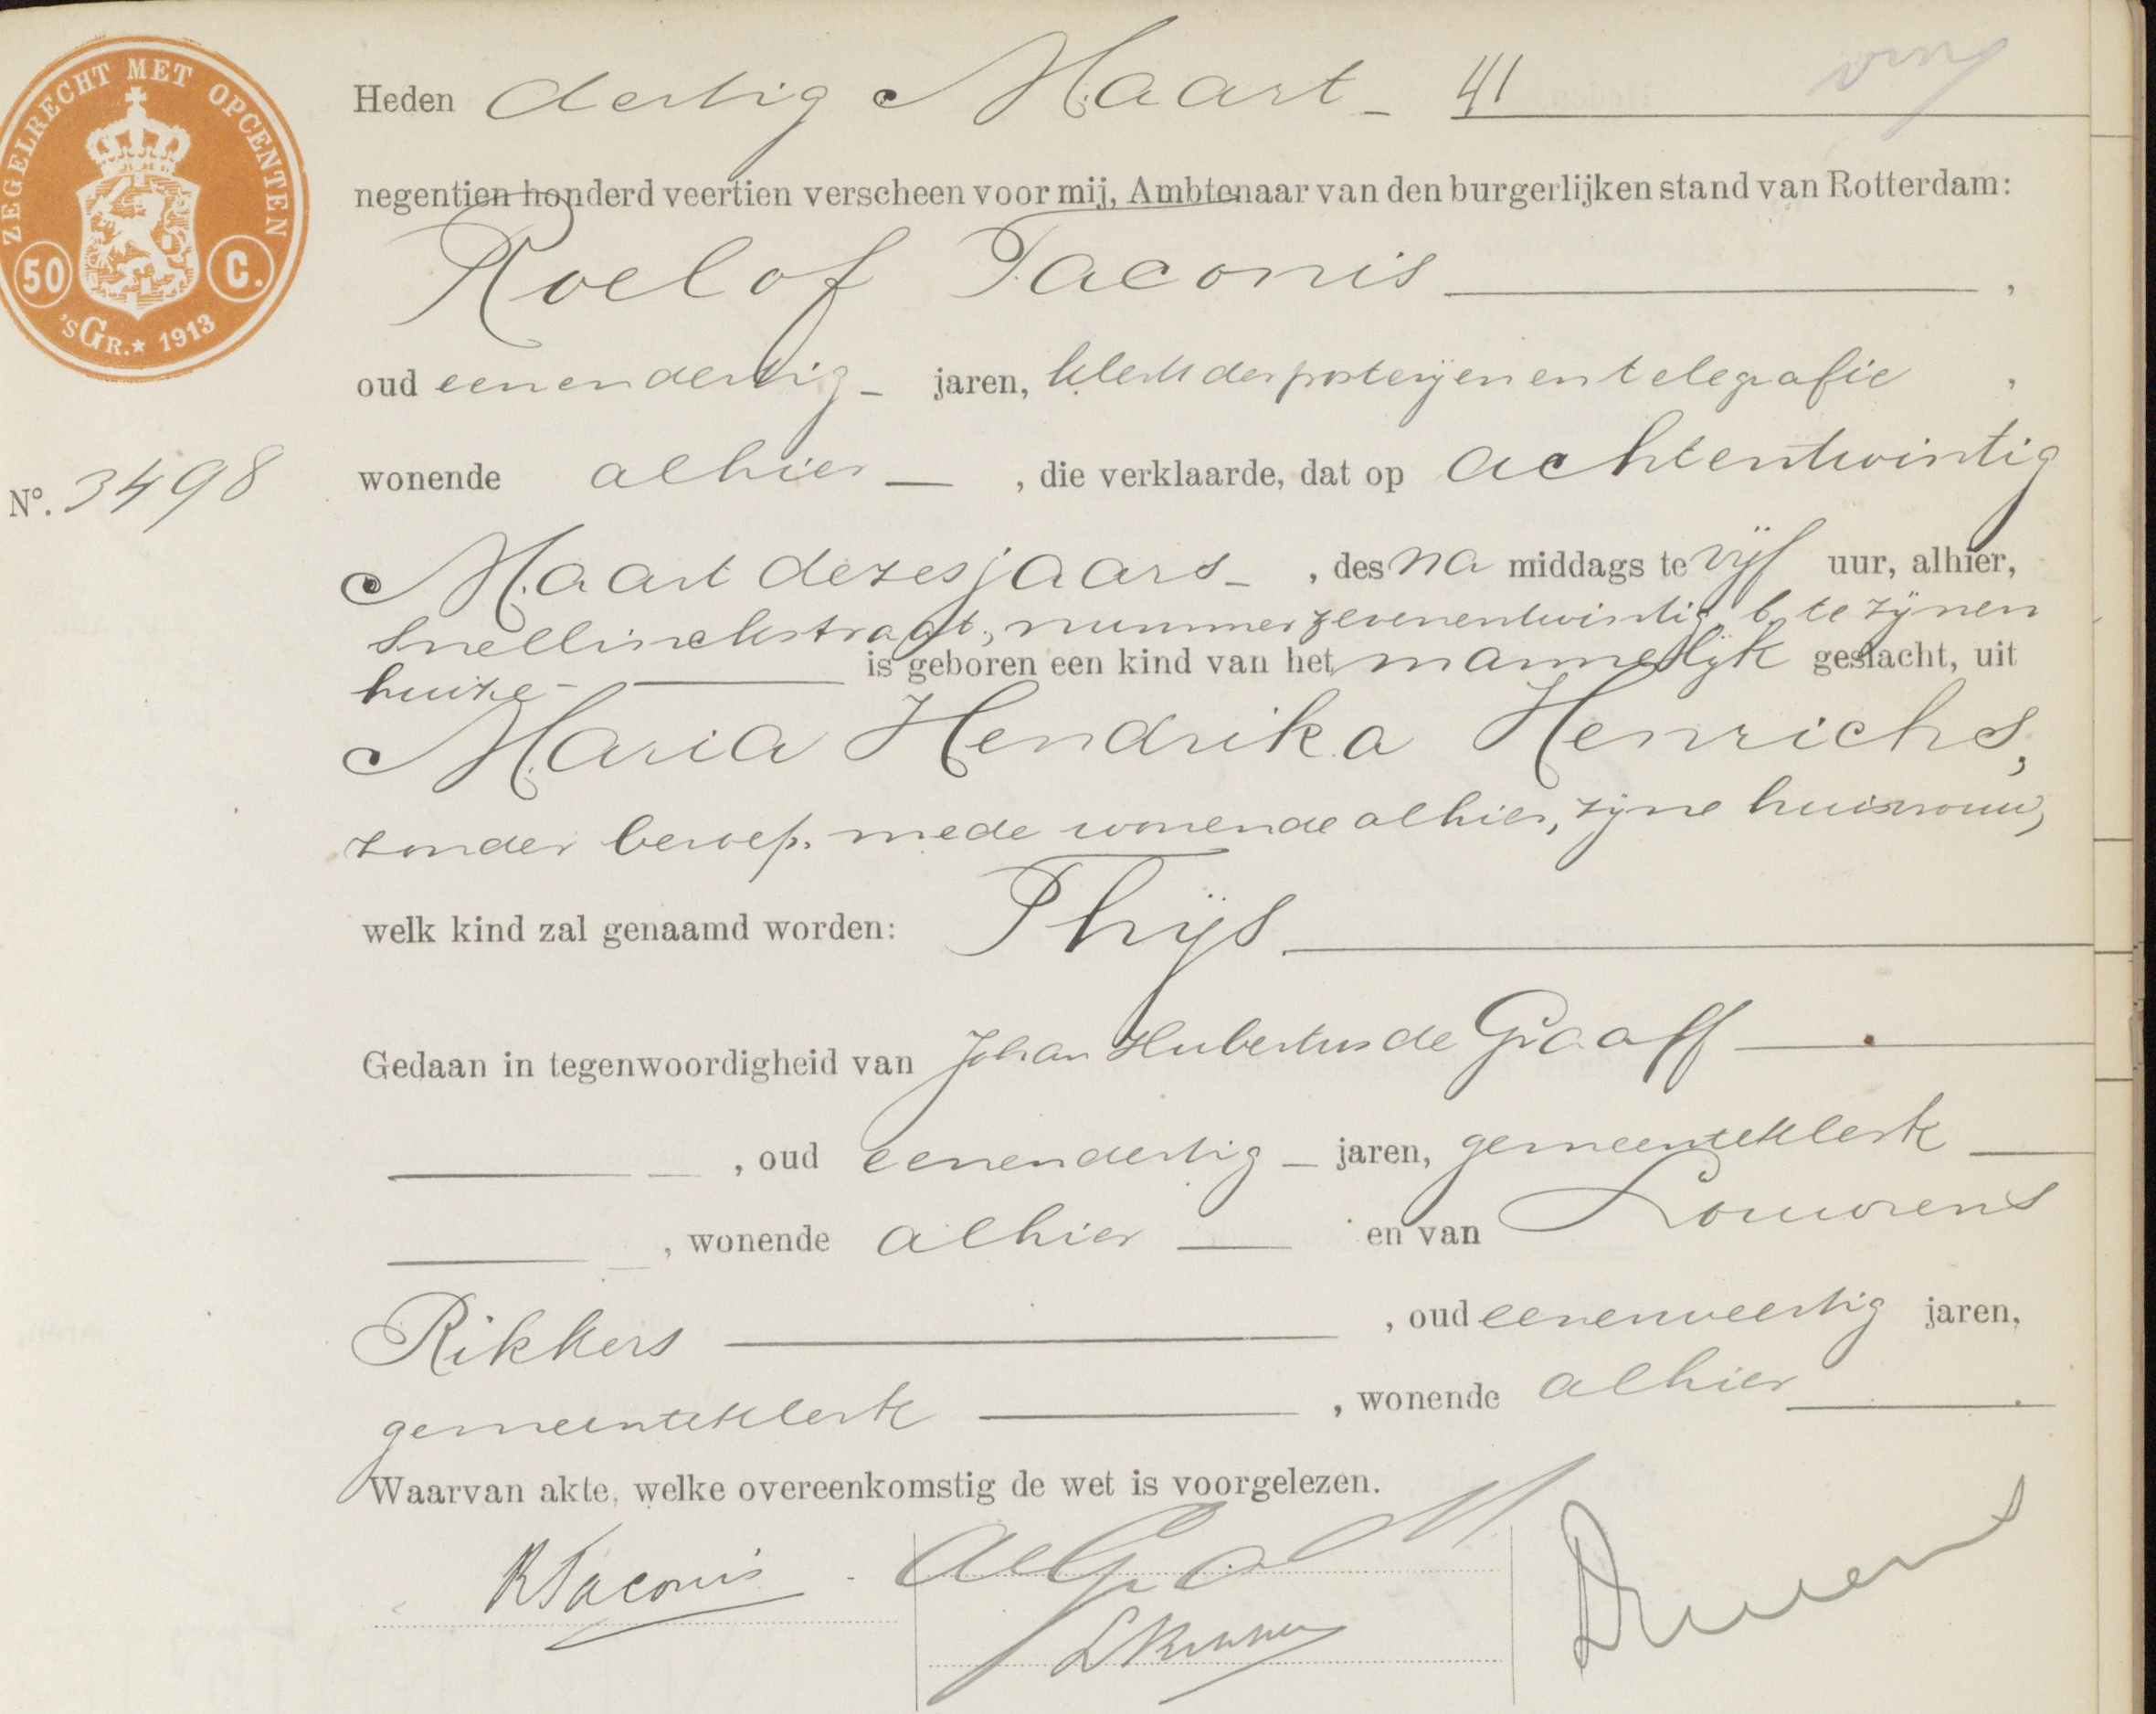 ZEGELRECHT MET OPCENTEN
50 C.
'S GR.★ 1913
Heden dertig Maart 41
negentien honderd veertien verscheen voor mij, Ambtenaar van den burgerlijken stand van Rotterdam:
Roelof Taconis ,
oud eenendertig jaren, klerk der posterijen en telegrafie ,
Nº. 3498
wonende alhier , die verklaarde, dat op achtentwintig
Maart dezes jaars , des na middags te vijf uur, alhier,
Snellinckstraat, nummer zevenentwintig b te zijnen
huize is geboren een kind van het mannelijk geslacht, uit
Maria Hendrika Henrichs,
zonder beroep, mede wonende alhier, zijne huisvrouw,
welk kind zal genaamd worden: Thijs
Gedaan in tegenwoordigheid van Johan Hubertus de Graaff
, oud eenendertig jaren, gemeenteklerk
, wonende alhier en van Louwrens
Rikkers , oud eenenveertig jaren,
gemeenteklerk , wonende alhier .
Waarvan akte, welke overeenkomstig de wet is voorgelezen.
RTaconis deGraaff
LRikkers